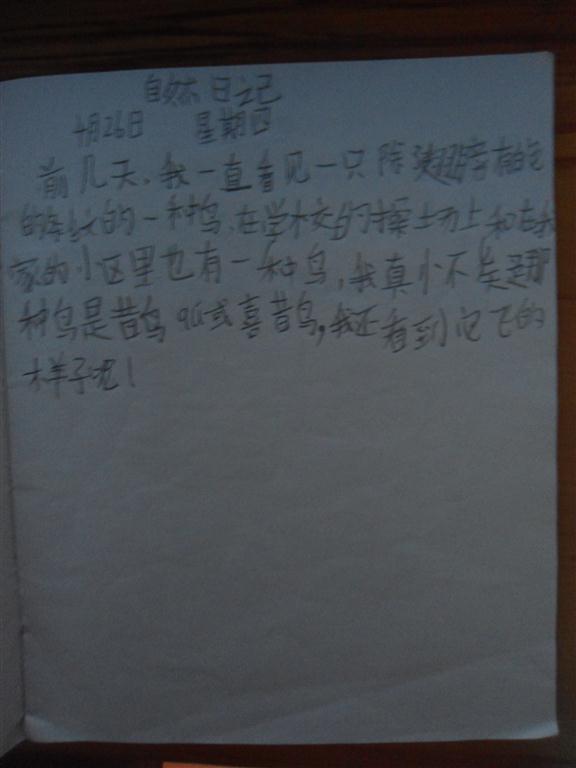 自然 日记
4月26日 星期四
前几天,我一直看见一只 翅膀 有白色
的 的一种鸟,在学校的操场上和在我
家的小区里也有一种鸟,我真 不 是那
种鸟是 鸟 或喜昔鸟,我还看到 飞的
样子呢!